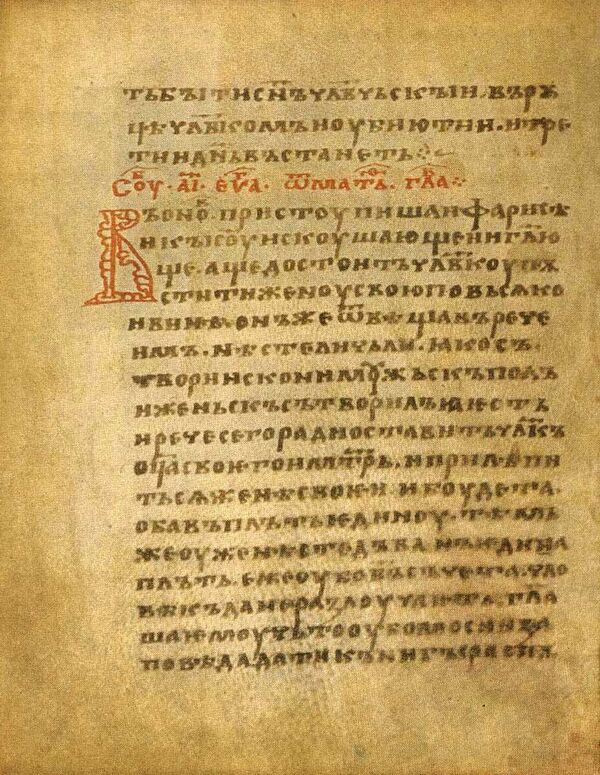 тьбꙑтисн҃ъчл҃вчьскꙑи·върѫ
цѣчл҃вкомъ·оубиютъи·итре
тиидн҃ьвъстанетъ⁘
Соу·а҃і·еѵ҃а·ѿмат҃·гл҃а⁘
Въоно҃·пристоупишѧфарисѣ
икъıс҃оуискоушающеигл҃ю
ще·ащедостоитъчл҃вкоупѫ
ститиженоусвоюповьсѧко
ивинѣ·онъжеѿвѣщавърече
имъ·нѣстеличьли·ꙗкосъ
творииисконимѫжьскъполъ
иженьскъсътворилъꙗестъ
иречесегорадиоставитъчл҃вкъ
оц҃асвоѥгоимт҃рь·иприлѣпи
тьсѧженѣсвоѥи·ибоудета
обавъплътьѥдиноу·тѣмь
жеоуженѣстодъва·нъѥдина
плъть·ежеоубобъ҃съчета·чло
вѣкъданеразлоучаѥтъ·гл҃а
шаѥмоучьтооубомосиза
повѣдадатикънигꙑраспѹ